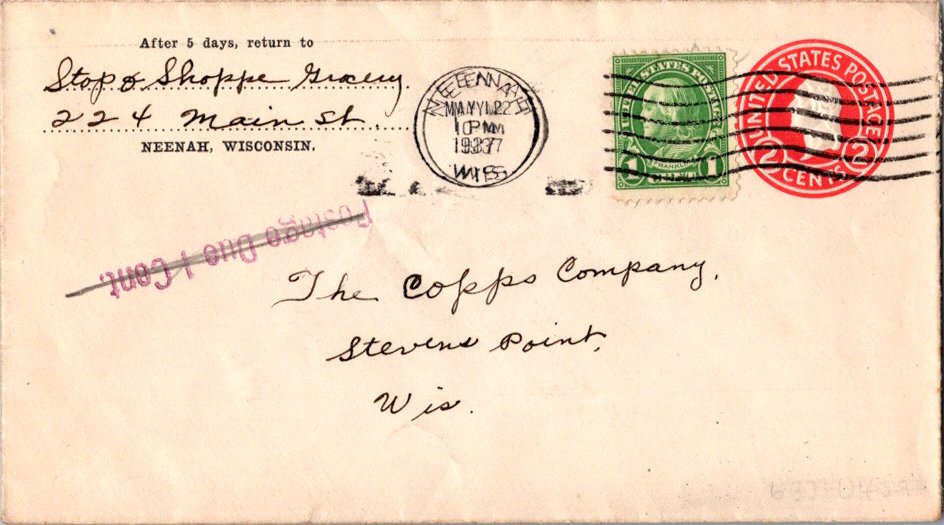 After 5 days, return to
Stop & Shoppe Grocery
224 Main St.
NEENAH, WISCONSIN.
NEENAH
MAY 22
10 PM
1937
WIS
UNITED STATES POSTAGE
FRANKLIN
1 CENT 1
UNITED STATES POSTAGE
2 CENTS 2
Postage Due 1 Cent.
The Copps Company,
Stevens Point,
Wis.